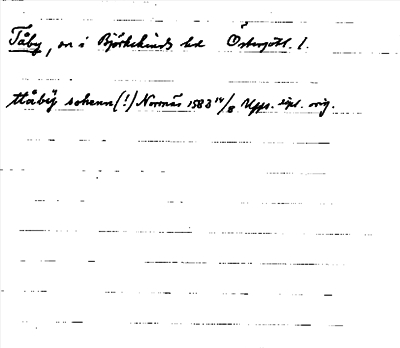 Tåby, sn i Björkekinds hd Östergötl. l.
tåby sokenn (!) Norrnäs 1583 14/8 Upps. dipl. orig.